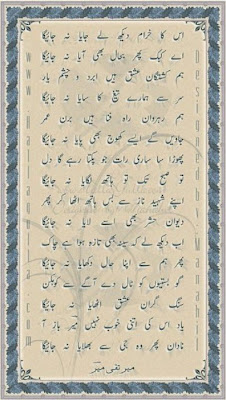 اس کا خرام دیکھ کے جایا نہ جائیگا
اے کبک پھر بحال بھی آیا نہ جائیگا
ہم کشتگان عشق ہیں ابرو و چشم یار
سر سے ہمارے تیغ کا سایا نہ جائیگا
ہم رہروان راہ فنا ہیں برنگ عمر
جاویں گے ایسے کھوج بھی پایا نہ جائیگا
پھوڑا سا ساری رات جو پکتا رہے گا دل
تو صبح تک تو ہاتھ لگایا نہ جائیگا
اپنے شہید ناز سے بس ہاتھ اٹھا کہ پھر
دیوان حشر میں اسے لایا نہ جائیگا
اب دیکھ لے کہ سینہ بھی تازہ ہوا ہے چاک
پھر ہم سے اپنا حال دکھایا نہ جائیگا
گو بیستوں کو ٹال دے آگے سے کوہکن
سنگ گران عشق اٹھایا نہ جائیگا
یاد اس کی اتنی خوب نہیں میر باز آ
نادان پھر وہ جی سے بھلایا نہ جائیگا
میر تقی میر